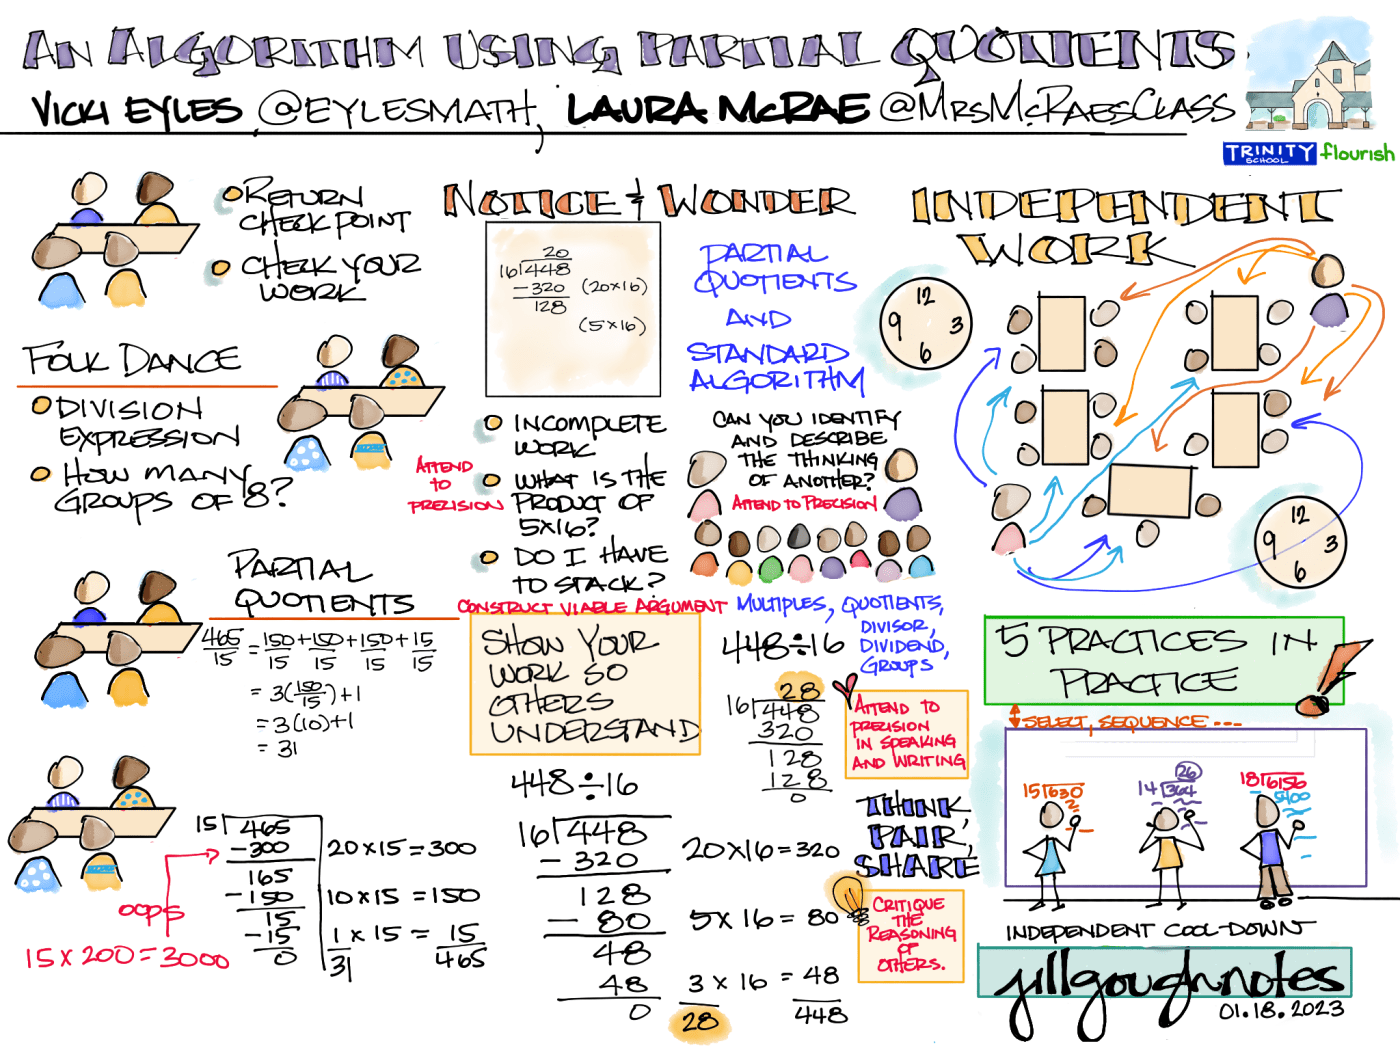 AN ALGORITHM USING PARTIAL QUOTIENTS
VICKI EYLES @EYLESMATH, LAURA MCRAE @MRSMCRAESCLASS
TRINITY
SCHOOL
flourish
RETURN
CHECKPOINT
CHECK YOUR
WORK
FOLK DANCE
DIVISION
EXPRESSION
HOW MANY
GROUPS OF 8?
ATTEND
TO
PRECISION
PARTIAL
QUOTIENTS
465/15 = 150/15 + 150/15 + 150/15 + 15/15
= 3(150/15) + 1
= 3(10) + 1
= 31
15 465
-300
165
-150
15
-15
0
20 x 15 = 300
10 x 15 = 150
1 x 15 = 15
31
465
OOPS
15 x 200 = 3000
NOTICE & WONDER
20
16 448
-320 (20x16)
128
(5x16)
PARTIAL
QUOTIENTS
AND
STANDARD
ALGORITHM
INCOMPLETE
WORK
WHAT IS THE
PRODUCT OF
5x16?
DO I HAVE
TO STACK?
CONSTRUCT VIABLE ARGUMENT
SHOW YOUR
WORK SO
OTHERS
UNDERSTAND
CAN YOU IDENTIFY
AND DESCRIBE
THE THINKING
OF ANOTHER?
ATTEND TO PRECISION
MULTIPLES, QUOTIENTS,
DIVISOR,
DIVIDEND,
GROUPS
448÷16
28
16 448
320
128
128
0
ATTEND TO
PRECISION
IN SPEAKING
AND WRITING
448÷16
16 448
-320
128
-80
48
48
0
20 x 16 = 320
5 x 16 = 80
3 x 16 = 48
28
448
THINK,
PAIR,
SHARE
CRITIQUE
THE
REASONING
OF
OTHERS.
INDEPENDENT
WORK
12
9 3
6
12
9 3
6
5 PRACTICES IN
PRACTICE
SELECT, SEQUENCE ...
15 630
2
26
14 364
18 6156
5400
INDEPENDENT COOL-DOWN
jillgoughnotes
01.18.2023